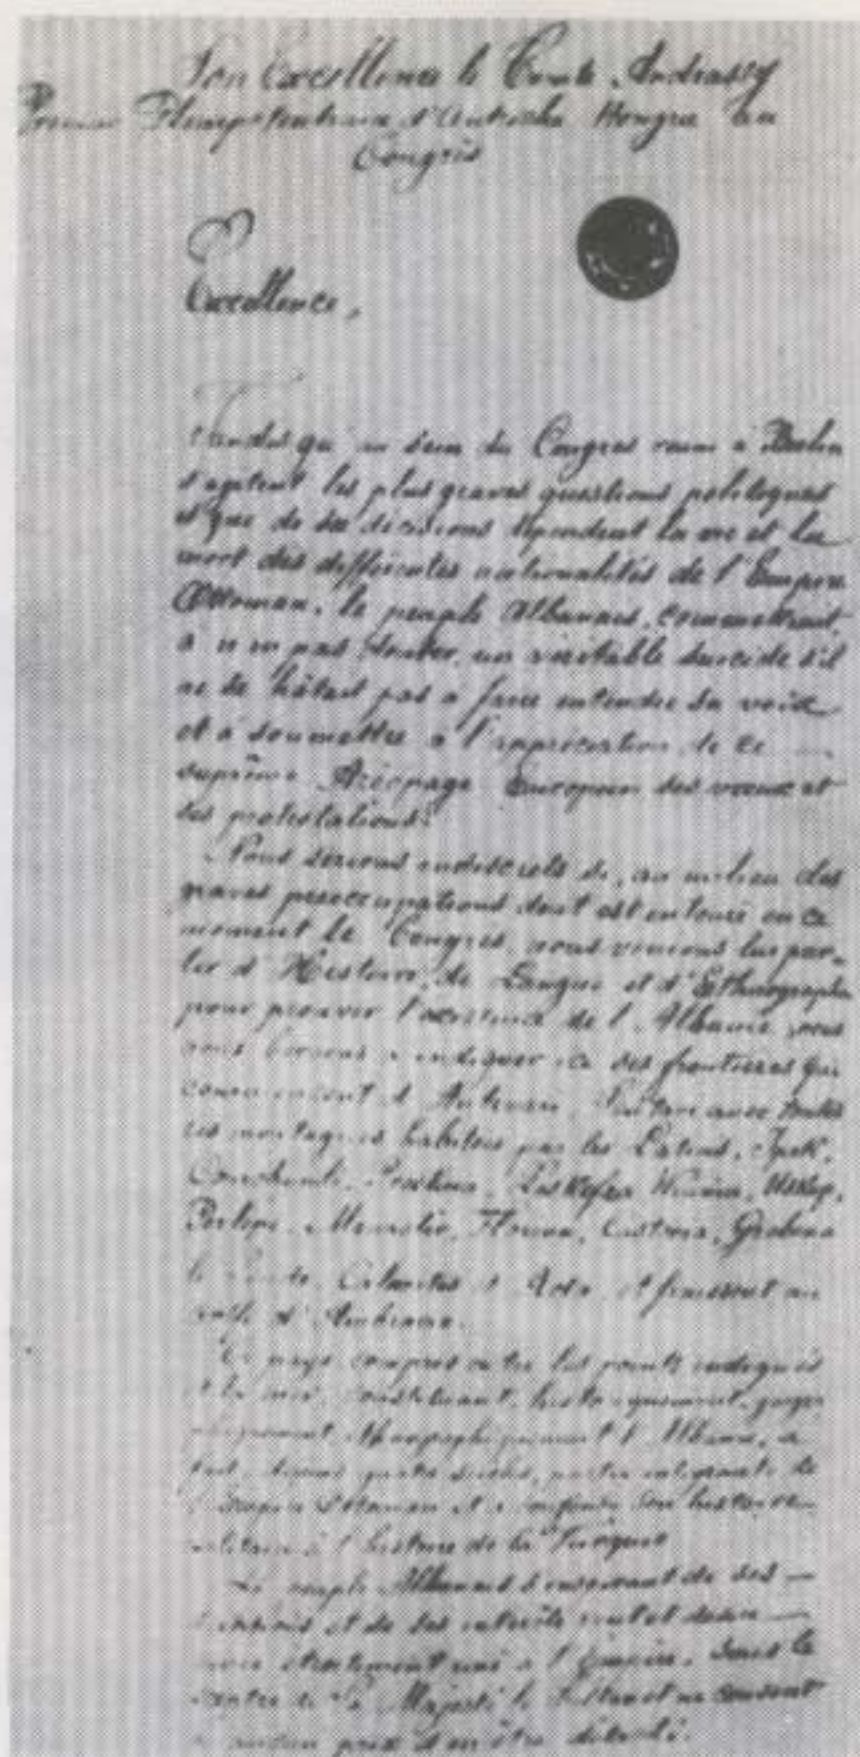 Son Excellence le Comte Andrassy
Premier Plénipotentiaire d'Autriche Hongrie au
Congrès
Excellence,
Tandis qu'au sein du Congrès réuni à Berlin
s'agitent les plus graves questions politiques
et que de ses décisions dépendent la vie et la
mort des différentes nationalités de l'Empire
Ottoman, le peuple Albanais, commettrait,
à n'en pas douter, un véritable suicide s'il
ne se hâtait pas à faire entendre sa voix
et à soumettre à l'appréciation de ce
suprême Aréopage Européen ses vœux et
ses protestations.
Nous serions indiscrets si, au milieu des
graves préoccupations dont est entouré en ce
moment le Congrès, nous venions lui par-
ler d'Histoire, de Langue et d'Ethnographie
pour prouver l'existence de l'Albanie, nous
nous bornons à indiquer ici ses frontières qui
commencent d'Antivari, avec toutes
ses montagnes habitées par les Latins, Ipek,
Prichtina, Uskup,
Perlepe, Monastir, Florina, Castoria, Grebena
et finissent au
golfe d'Ambracie.
Ce pays compris entre les points indiqués
et la mer, constituant, historiquement, géogra-
phiquement, ethnographiquement l'Albanie, a
fait, depuis quatre siècles, partie intégrante de
l'Empire Ottoman et a confondu son histoire
militaire à l'histoire de la Turquie
Le peuple Albanais de ses
et de ses intérêts veut et désire
étroitement uni à l'Empire, sous le
sceptre de Sa Majesté le Sultan et ne consent
à aucun prix d'en être détaché.